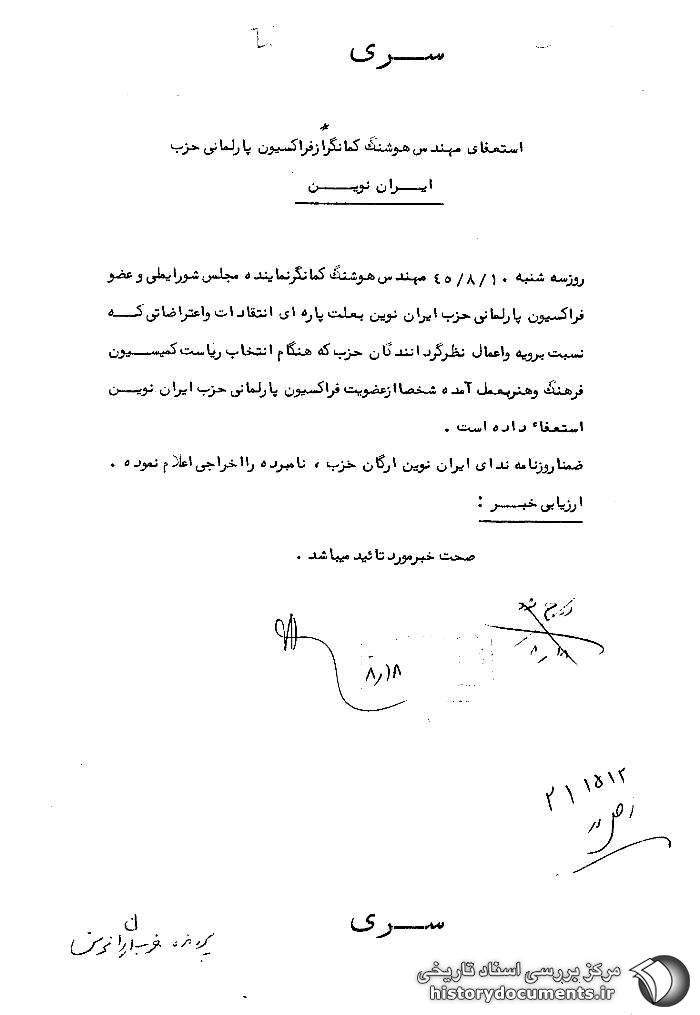 سری
استعفای مهندس هوشنگ کمانگر* از فراکسیون پارلمانی حزب
ایران نوین
روز سه شنبه ۴۵/۸/۱۰ مهندس هوشنگ کمانگر نماینده مجلس شورایملی و عضو
فراکسیون پارلمانی حزب ایران نوین بعلت پاره ای انتقادات و اعتراضاتی که
نسبت برویه و اعمال نظر گردانندگان حزب که هنگام انتخاب ریاست کمیسیون
فرهنگ و هنر بعمل آمده شخصا از عضویت فراکسیون پارلمانی حزب ایران نوین
استعفاء داده است .
ضمنا روزنامه ندای ایران نوین ارگان حزب ، نامبرده را اخراجی اعلام نموده .
ارزیابی خبر :
صحت خبر مورد تائید میباشد .
درج شد
۸٫۱۸
۸٫۱۸
۲۱۱۵۱۲
سری
پرونده حزب ایران نوین
مرکز بررسی اسناد تاریخی
historydocuments.ir